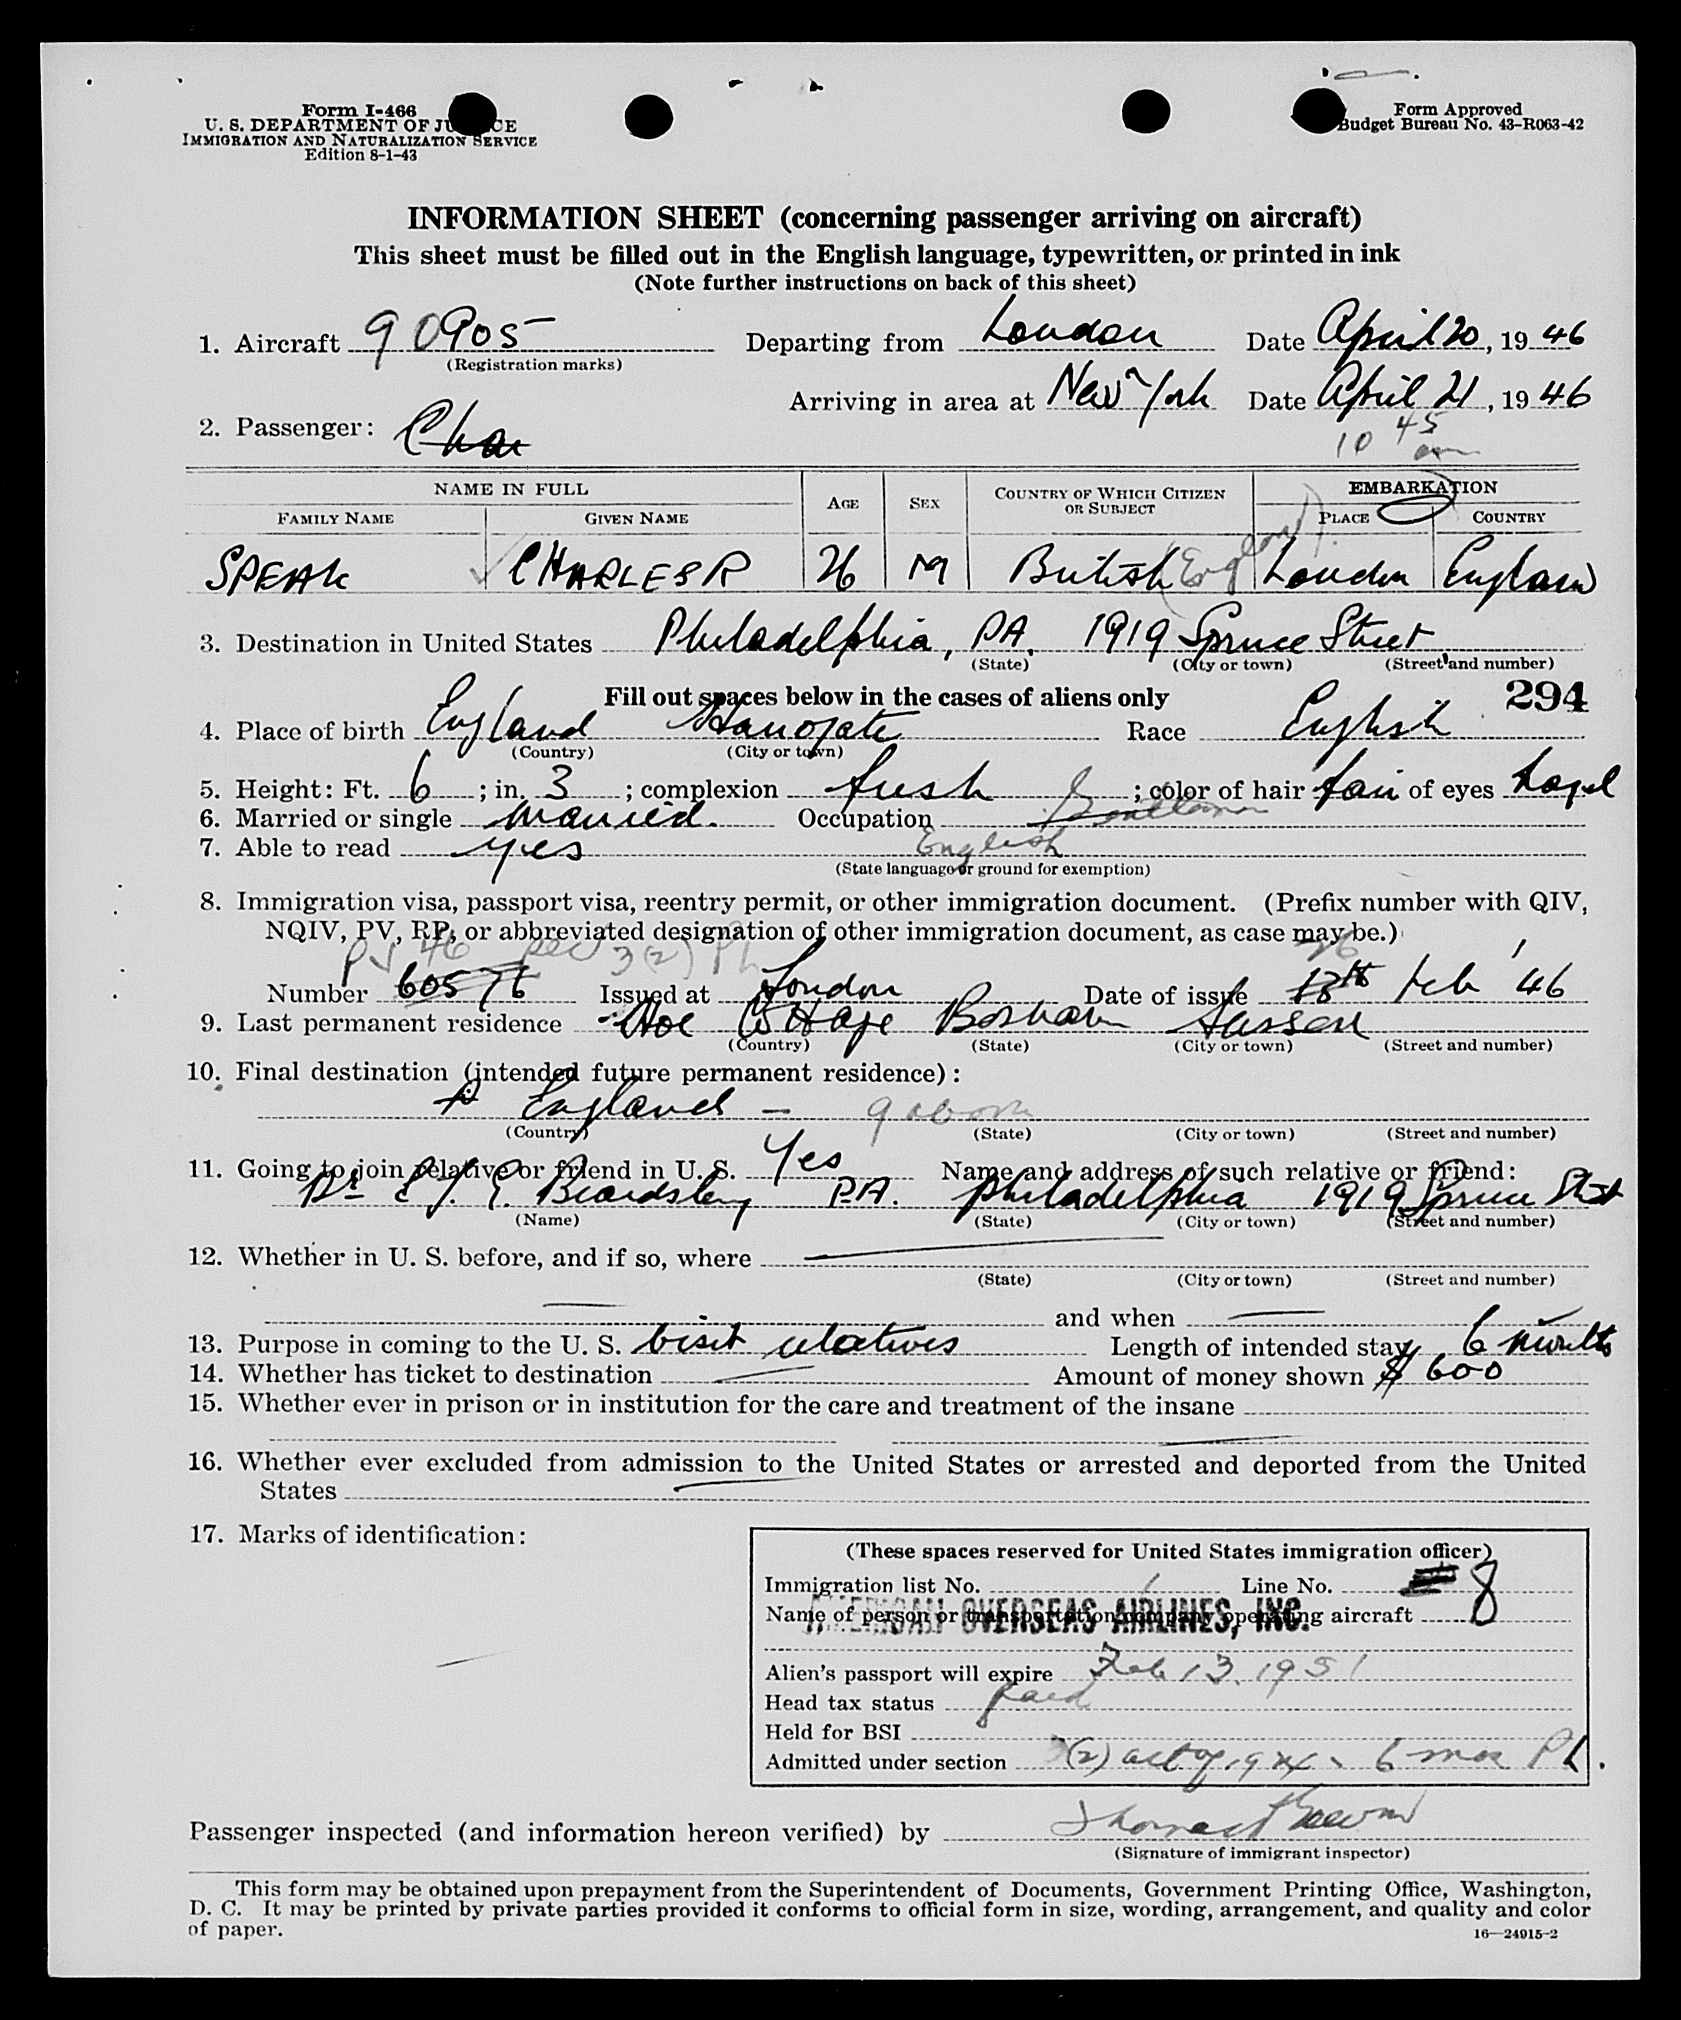 Form I-466
U. S. DEPARTMENT OF JUSTICE
IMMIGRATION AND NATURALIZATION SERVICE
Edition 8-1-43
Form Approved
Budget Bureau No. 43-R063-42
INFORMATION SHEET (concerning passenger arriving on aircraft)
This sheet must be filled out in the English language, typewritten, or printed in ink
(Note further instructions on back of this sheet)
1. Aircraft 90905 Departing from London Date April 20, 1946
(Registration marks)
Arriving in area at New York Date April 21, 1946
2. Passenger: Cha
10 45 am
NAME IN FULL AGE SEX COUNTRY OF WHICH CITIZEN OR SUBJECT EMBARKATION
FAMILY NAME GIVEN NAME PLACE COUNTRY
SPEAK CHARLES R 26 M British (England) London England
3. Destination in United States Philadelphia, PA. 1919 Spruce Street
(State) (City or town) (Street and number)
Fill out spaces below in the cases of aliens only 294
4. Place of birth England Harrogate Race English
(Country) (City or town)
5. Height: Ft. 6; in. 3; complexion fresh; color of hair fair of eyes hazel
6. Married or single married. Occupation Gentleman
7. Able to read yes English
(State language or ground for exemption)
8. Immigration visa, passport visa, reentry permit, or other immigration document. (Prefix number with QIV,
NQIV, PV, RP, or abbreviated designation of other immigration document, as case may be.)
PV 46 sec 3(2) Ph 26
Number 60576 Issued at London Date of issue 13th Feb '46
9. Last permanent residence Hoe Bosham Sussex
(Country) (State) (City or town) (Street and number)
10. Final destination (intended future permanent residence):
England — 9 above
(Country) (State) (City or town) (Street and number)
11. Going to join relative or friend in U. S. Yes Name and address of such relative or friend:
Dr E. J. G. Beardsley PA. Philadelphia 1919 Spruce Street
(Name) (State) (City or town) (Street and number)
12. Whether in U. S. before, and if so, where
(State) (City or town) (Street and number)
and when
13. Purpose in coming to the U. S. visit relatives Length of intended stay 6 months
14. Whether has ticket to destination Amount of money shown $ 600
15. Whether ever in prison or in institution for the care and treatment of the insane
16. Whether ever excluded from admission to the United States or arrested and deported from the United
States
17. Marks of identification:
(These spaces reserved for United States immigration officer)
Immigration list No. 1 Line No. 8
Name of person or transportation company operating aircraft
AMERICAN OVERSEAS AIRLINES, INC.
Alien's passport will expire Feb 13, 1951
Head tax status paid
Held for BSI
Admitted under section 3(2) act of 1924 6 mos Ph.
Passenger inspected (and information hereon verified) by
(Signature of immigrant inspector)
This form may be obtained upon prepayment from the Superintendent of Documents, Government Printing Office, Washington,
D. C. It may be printed by private parties provided it conforms to official form in size, wording, arrangement, and quality and color
of paper.
16—24915-2